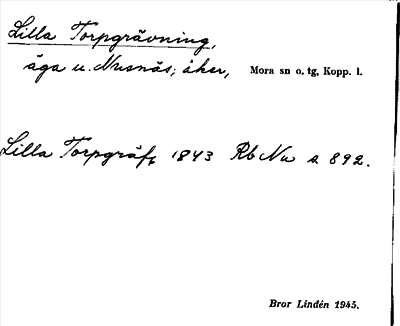 Lilla Torpgrävning,
äga u. Nusnäs; åker, Mora sn o. tg, Kopp. l.
Lilla Torpgräfg 1843 Rb Nu s. 892.
Bror Lindén 1945.